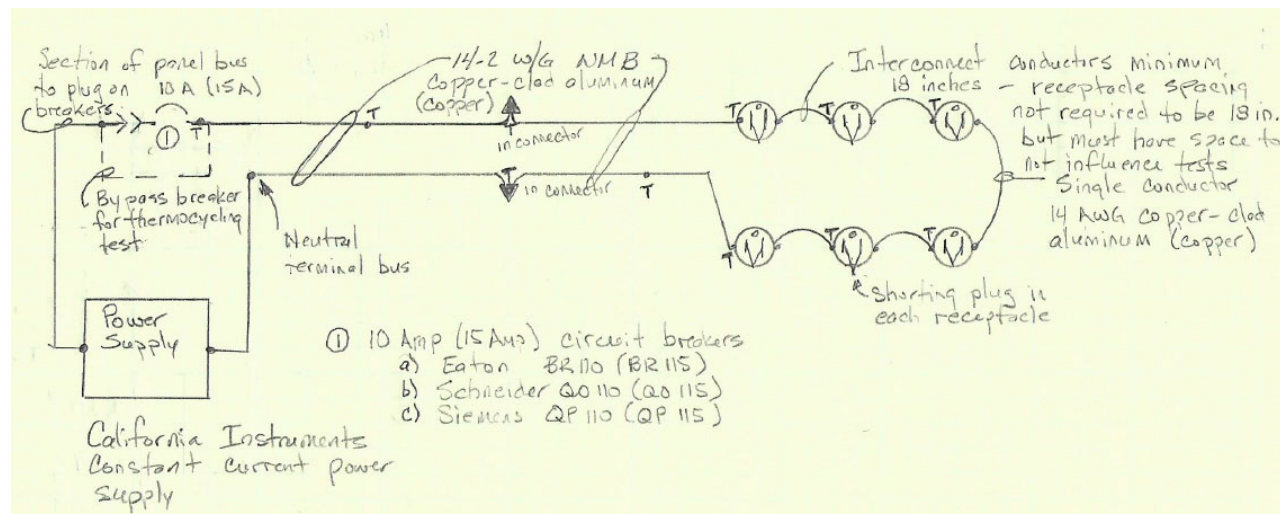 Section of panel bus
to plug on 10A (15A)
breakers
①
T
Bypass breaker
for thermocycling
test
Neutral
terminal bus
14-2 w/G NMB
copper-clad aluminum
(copper)
T
in connector
T
in connector
T
T
T
T
Interconnect conductors minimum
18 inches - receptacle spacing
not required to be 18 in.
but must have space to
not influence tests
Single conductor
14 AWG copper-clad
aluminum (copper)
T
T
T
Shorting plug in
each receptacle
Power
Supply
California Instruments
Constant current power
supply
① 10 Amp (15 Amp) circuit breakers
a) Eaton BR110 (BR115)
b) Schneider QO110 (QO115)
c) Siemens QP110 (QP115)